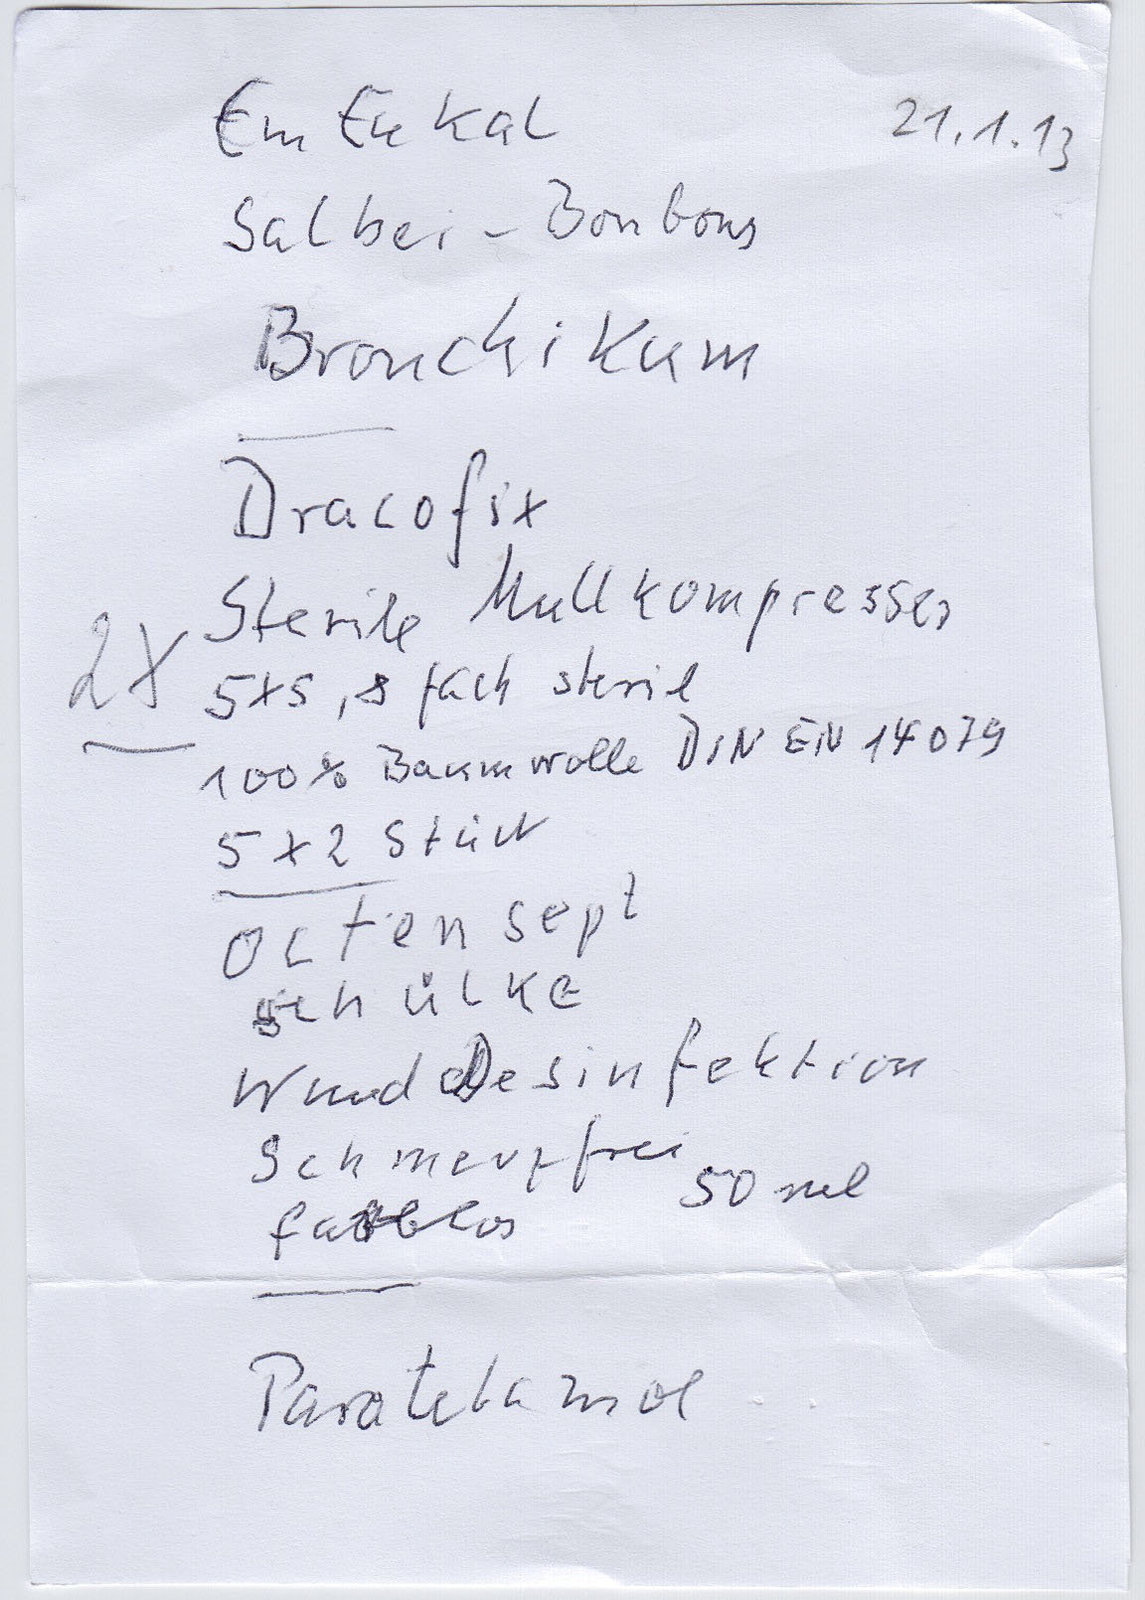 Em Eukal
21.1.13
Salbei - Bonbons
Bronchikum
Dracofix
Sterile Mullkompressen
2x
5x5, 8 fach steril
100% Baumwolle DIN EN 14079
5 x 2 Stück
Octensept
schülke
Wund Desinfektion
Schmerzfrei
50 ml
farblos
Paratetamol